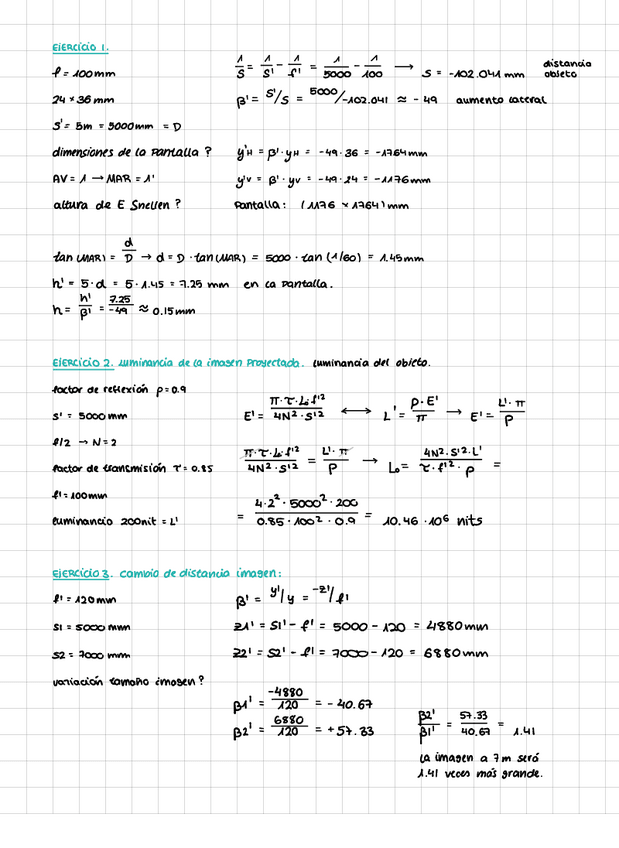 EJERCICIO 1.
f = 100mm
1/S = 1/S' - 1/f' = 1/5000 - 1/100 → S = -102.041 mm distancia objeto
24 × 36 mm
β' = S'/S = 5000/-102.041 ≈ -49 aumento lateral
S' = 5m = 5000mm = D
dimensiones de la pantalla?
y'H = β'·yH = -49·36 = -1764mm
AV = 1 → MAR = 1'
y'V = β'·yV = -49·24 = -1176mm
altura de E Snellen?
Pantalla: (1176 × 1764)mm
tan(MAR) = d/D → d = D·tan(MAR) = 5000·tan(1/60) = 1.45mm
h' = 5·d = 5·1.45 = 7.25 mm en la pantalla.
h = h'/β' = 7.25/-49 ≈ 0.15mm
EJERCICIO 2. Luminancia de la imagen proyectada. Luminancia del objeto.
factor de reflexión ρ=0.9
S' = 5000mm
E' = π·τ·L₀·f'²/4N²·S'² ⟷ L' = ρ·E'/π → E' = L'·π/ρ
f/2 → N=2
factor de transmisión τ = 0.85
π·τ·L₀·f'²/4N²·S'² = L'·π/ρ → L₀ = 4N²·S'²·L'/τ·f'²·ρ =
f'=100mm
luminancia 200nit = L'
= 4·2²·5000²·200/0.85·100²·0.9 = 10.46·10⁶ nits
EJERCICIO 3. Cambio de distancia imagen:
f' = 120mm
β' = y'/y = -z'/f'
S1 = 5000 mm
z1' = S1' - f' = 5000 - 120 = 4880mm
S2 = 7000 mm
z2' = S2' - f' = 7000 - 120 = 6880mm
variación tamaño imagen?
β1' = -4880/120 = -40.67
β2' = 6880/120 = +57.33
β2'/β1' = 57.33/40.67 = 1.41
La imagen a 7m será
1.41 veces más grande.